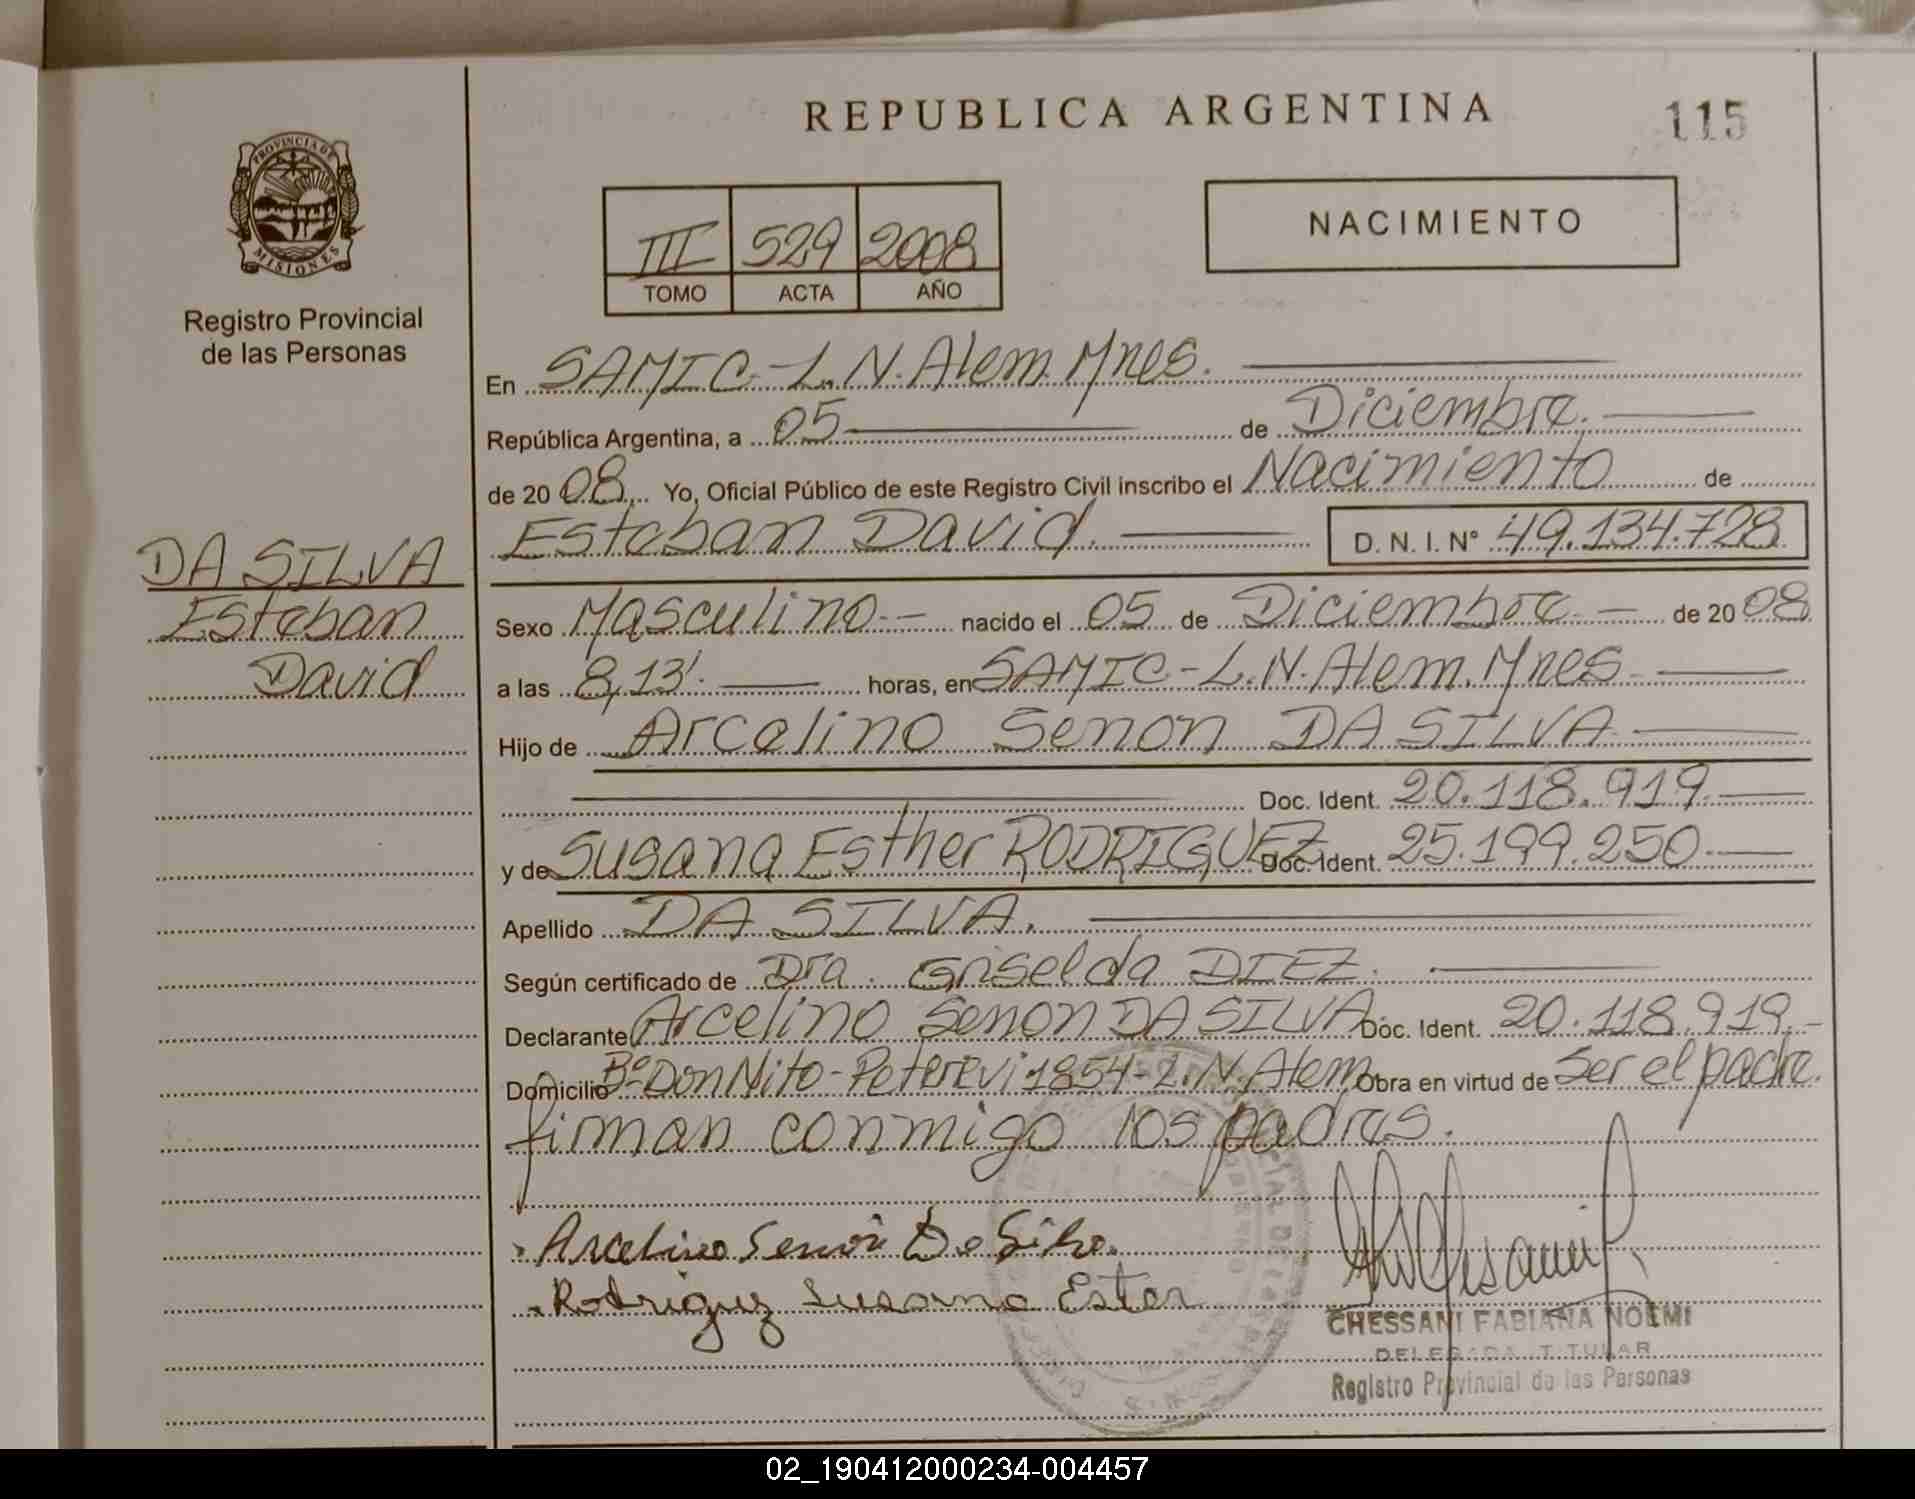 REPUBLICA ARGENTINA
115
PROVINCIA DE
MISIONES
Registro Provincial
de las Personas
III 529 2008
TOMO ACTA AÑO
NACIMIENTO
En SAMIC-L.N.Alem.Mnes.
República Argentina, a 05 de Diciembre.
de 20 08 Yo, Oficial Público de este Registro Civil inscribo el Nacimiento de
Esteban David. D. N. I. N° 49.134.728
DA SILVA
Esteban
David
Sexo Masculino.- nacido el 05 de Diciembre de 20 08
a las 8,13'. horas, en SAMIC-L.N.Alem.Mnes
Hijo de Arcelino Senon DA SILVA
Doc. Ident. 20.118.919
y de Susana Esther RODRIGUEZ Doc. Ident. 25.199.250.
Apellido DA SILVA.
Según certificado de Dra. Griselda DIEZ.
Declarante Arcelino Senon DA SILVA Doc. Ident. 20.118.919.-
Domicilio Bº Don Nito-Peterevi 1854-L.N.Alem Obra en virtud de Ser el padre.
firman conmigo los padres.
Arcelino Senon Da Silva
Rodriguez Susana Ester
CHESSANI FABIANA NOEMI
DELEGADA TITULAR
Registro Provincial de las Personas
02_190412000234-004457